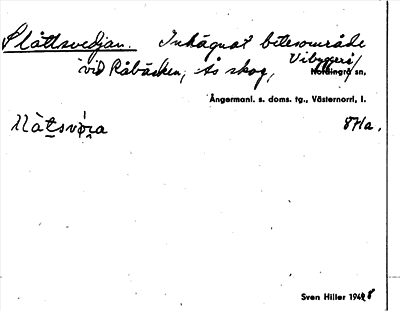 Slåttsvedjan. Inhägnat betesområde
vid Råbäcken, Ås skog, Vibyggerå
Nordingrå sn,
Ångermanl. s. doms. tg., Västernorrl. l.
8 Ha.
Sven Hiller 1948